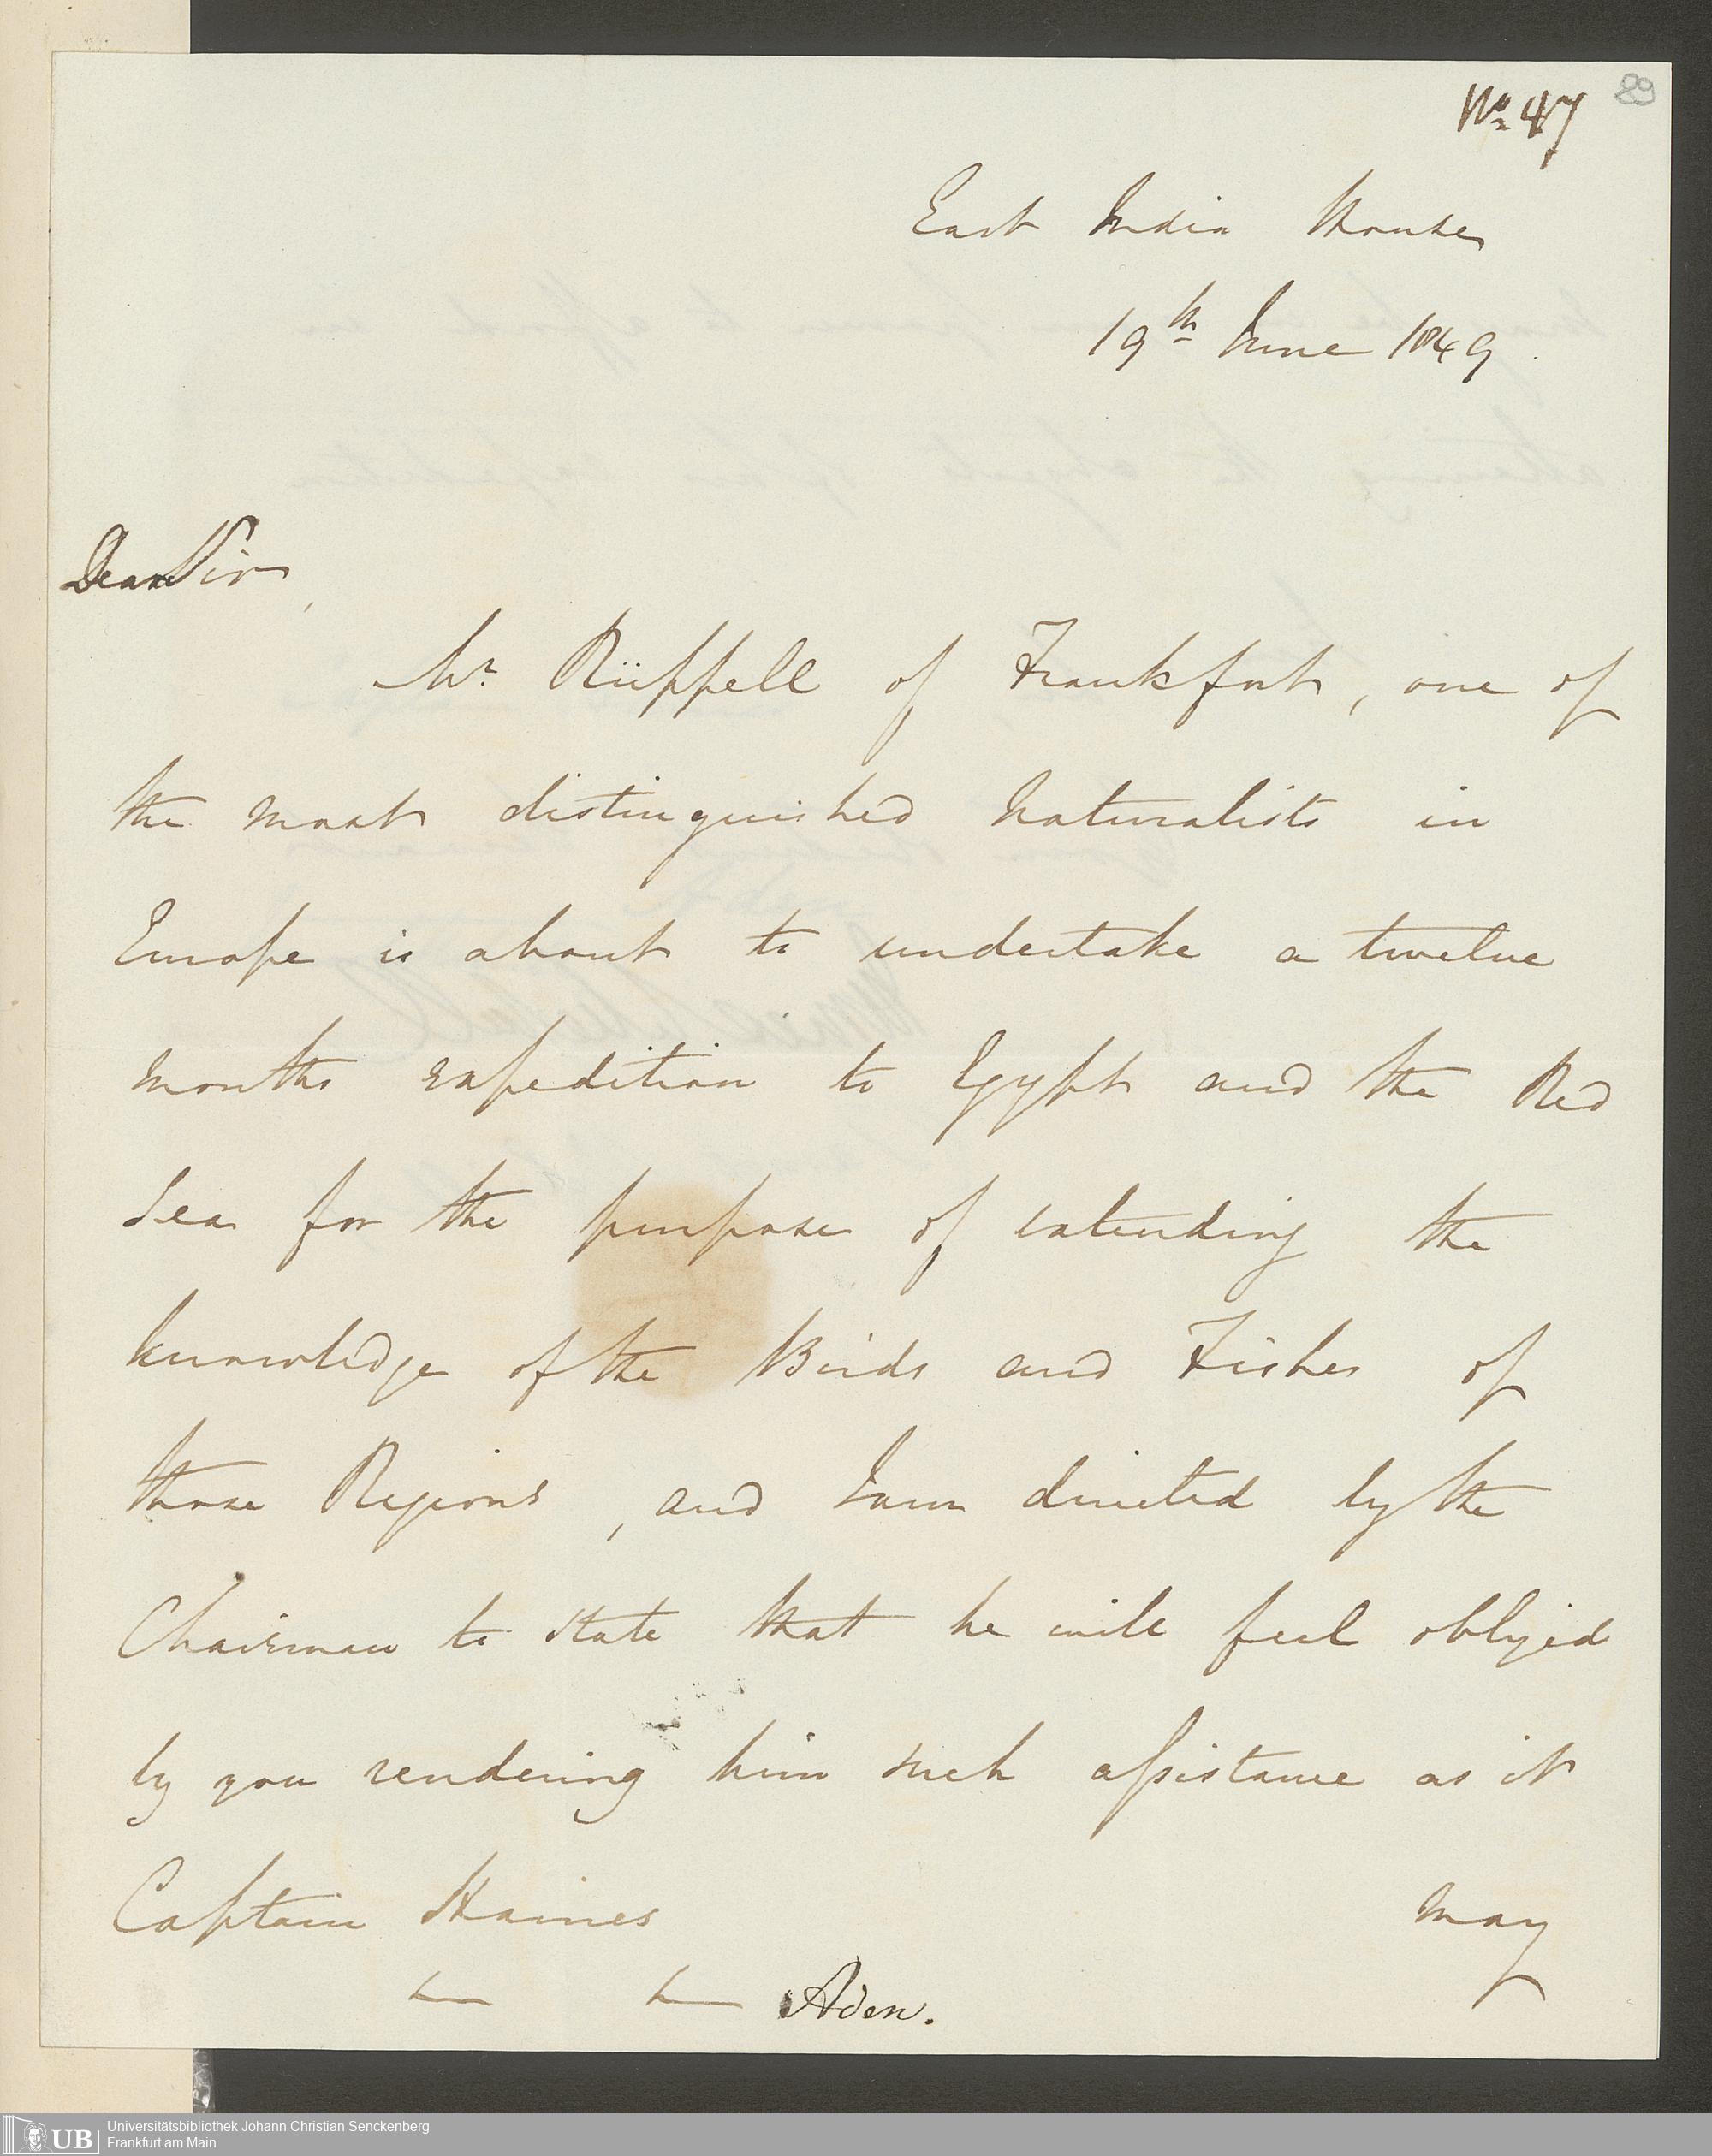 89
No 47
East India House
19th June 1849.
Dear Sir,
Mr. Rüppell of Frankfort, one of
the most distinguished Naturalists in
Europe is about to undertake a twelve
months expedition to Egypt and the Red
Sea for the purpose of extending the
knowledge of the Birds and Fishes of
those Regions, and I am directed by the
Chairman to state that he will feel obliged
by you rendering him such assistance as it
Captain Haines
may
Aden.
UB
Universitätsbibliothek Johann Christian Senckenberg
Frankfurt am Main